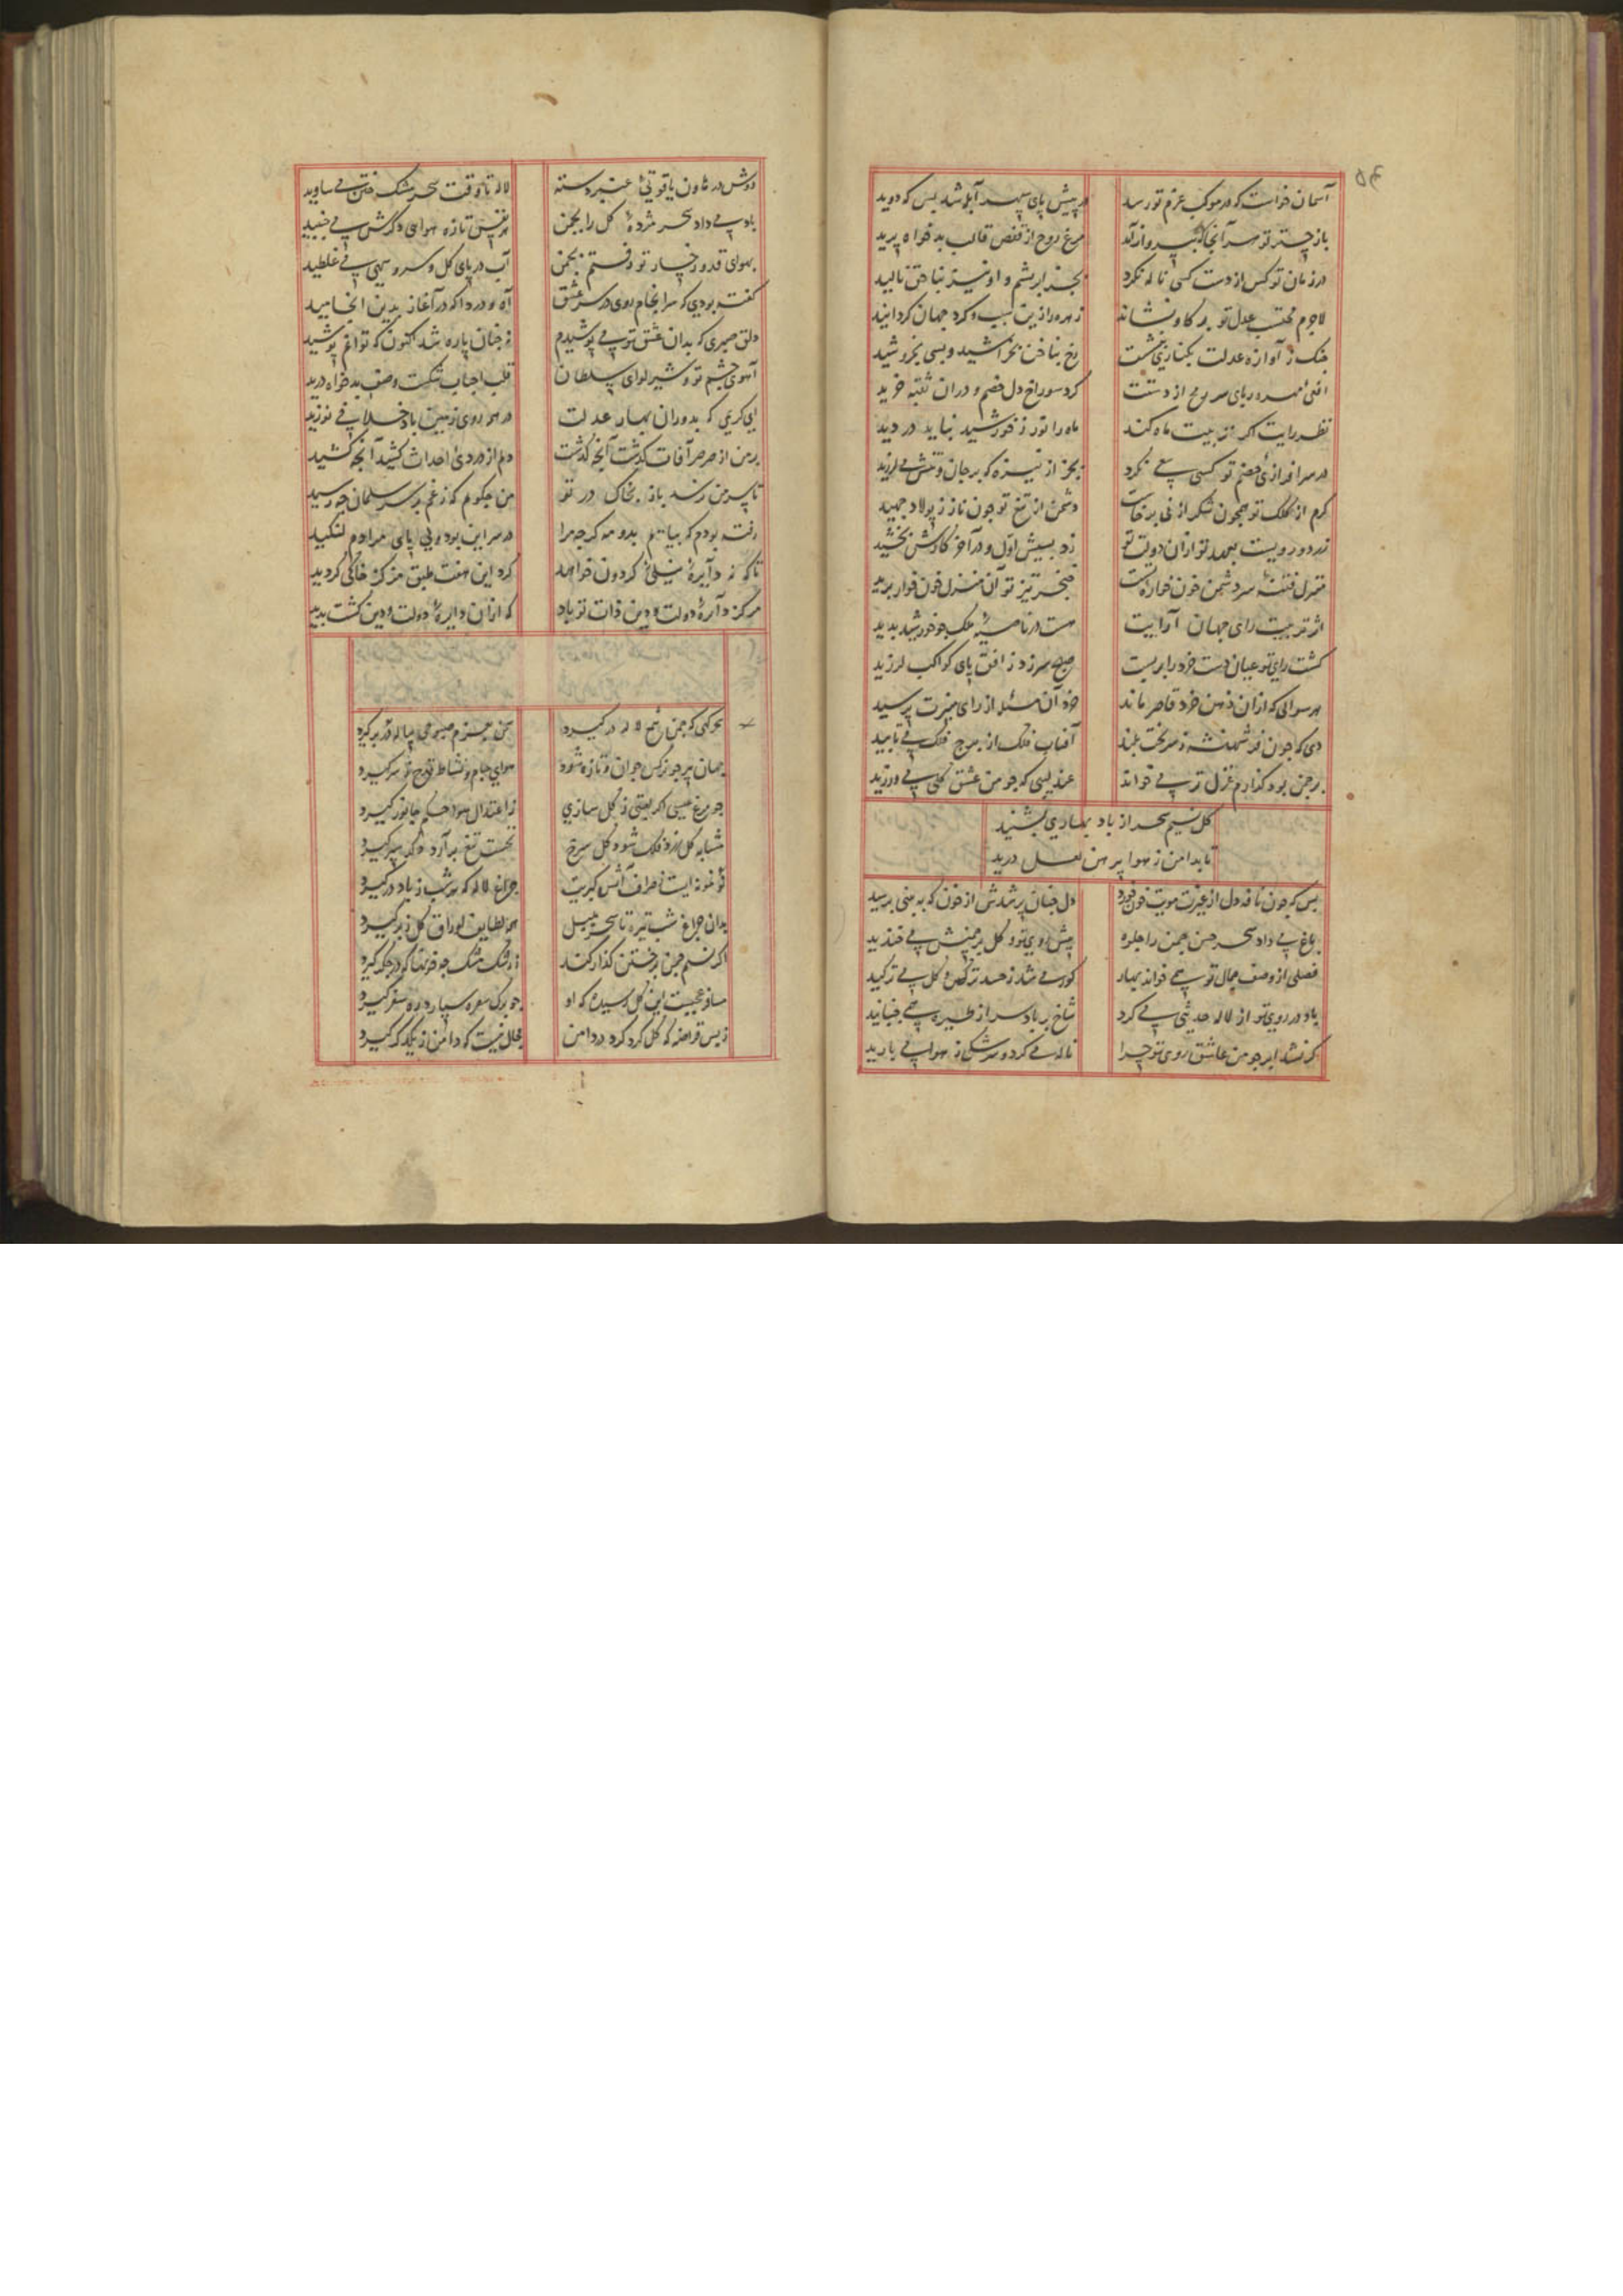 آسمان خواست که در موکب عزم تو رسد در پیش پای سپهر آبله شد بس که دوید
باز چتر تو سر آنجا که بپرواز آمد مرغ روح از قفص قالب بدخواه پرید
در زمان تو کس از دست کسی ناله نکرد بجز ابریشم و او نیز بناحق نالید
لاجرم محتسب عدل تو بر کاو نشاند زهره را زین سبب و کرد جهان کردانید
چنک ز آوازه عدلت بکناری بنشست رخ بناخن بخراشید و بسی بخروشید
افعی مهره ربای سر رمح از دستت کرد سوراخ دل خصم و در ان ثقبه خزید
نظر رایت اکر تربیت ماه کند ماه را نور ز خورشید نباید دزدید
در سرافرازی خصم تو کسی سعی نکرد بجز از نیزه که بر جان و تنش می لرزید
کرم از کلک تو همچون شکر از نی برخاست دشمن از تیغ تو چون نار ز پولاد جهید
زر دو رویست بعهد تو از ان دولت تو زد بسیش اول و در آخر کارش بخشید
منزل فتنه سر دشمن خون خوار تست خنجر تیز تو آن منزل خون خوار برید
اثر تربیت رای جهان آرایت هست در ناصیه ملک چو خورشید بدید
کشت رای تو عیان دست خرد را بر بست صبح سر زد ز افق پای کواکب لرزید
هر سوالی که از ان ذهن خرد قاصر ماند خرد آن مسئله از رای منیرت پرسید
دی که چون خور شهنشه ز سر تخت بلند آفتاب فلک از برج فلک می تابید
بر چمن بود کذارم غزل تر می خواند عندلیبی که چو من عشق کلی می ورزید
کل نسیم سحر از باد بهاری بشنید
تا بدامن ز هوا پیرهن لعل درید
بس که چون نافه دل از غیرت مویت خون خورد دل چنان پر شدش از خون که به بینی برسید
باغ می داد سحر حسن چمن را جلوه پیش روی تو و کل بر چمنش می خندید
فصلی از وصف جمال تو همی خواند بهار کوس می شد ز حسد نرکس و کل می ترکید
باد در روی تو از لاله حدیثی می کرد شاخ بر باد سر از طیره همی جنبانید
کر نشد ابر چو من عاشق روی تو چرا ناله می کرد و سرشک از هوا می بارید
دوش در هاون یاقوتی عنبر دسته لاله تا وقت سحر مشک ختن می سایید
باد می داد سحر مژده کل را بچمن هر نفس تازه هوای دکرش می جنبید
بهوای قد و رخسار تو رفتم بچمن آب در پای کل و سرو سهی می غلطید
کفته بودی که سرانجام روی در سر عشق آه و دردا که در آغاز بدین انجامید
دلق صبری که بدان عشق تو می پوشیدم نه چنان پاره شد اکنون که تواند پوشید
آهوی چشم تو و شیر لوای سلطان قلب احباب شکست و صف بدخواه درید
ای کریمی که بدوران بهار عدلت در همه روی زمین باد خلافی نوزید
بر من از صرصر آفات کذشت آنچه کذشت دلم از دردی احداث کشید آنچه کشید
تا سر من رسد باز بخاک در تو من چکویم که ز غم بر سر سلمان چه رسید
رفته بودم که بیایم بدو مه که چو مرا در سر این بود ولی پای مرادم لنکید
تا که نه دایره نیلی کردون خواهد کرد این هفت طبق مرکز خاکی کردید
مرکز دایره دولت و دین ذات تو باد که از ان دایره دولت و دین کشت بدید
سحرکهی که چمن شمع لاله در کیرد سمن بعزم صبوحی پیاله در بر کیرد
جهان پیر چو نرکس جوان و تازه شود هوای جام و نشاط قدح ز سر کیرد
چو مرغ عیسی اکر لعبتی ز کل سازی ز اعتدال هوا حکم جانور کیرد
بدان چراغ شب تیره تا سحر بلبل همه لطایف اوراق کل ز بر کیرد
اکر نسیم چمن بر ختن کذار کند ز رشک مشک چو خونها که در جکر کیرد
مسافر عجبست این کل رسیده که او چو برک سفره سپارد ره سفر کیرد
ز بس قراضه که کل کرد کرد در دامن محال نیست که دامن ز یکدکر کیرد